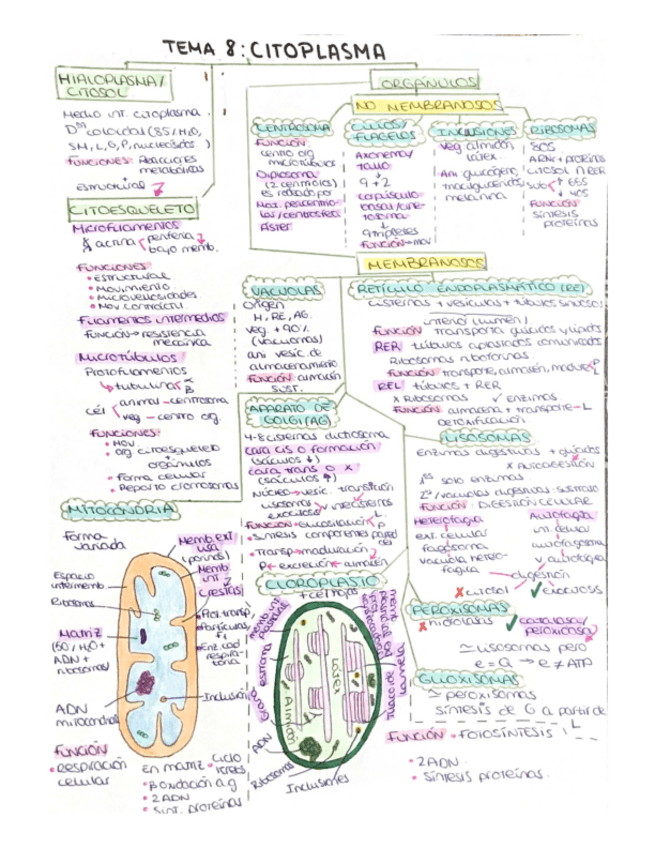 TEMA 8: CITOPLASMA
HIALOPLASMA/
CITOSOL
Medio int. citoplasma
Dºⁿ coloidal (85% H₂O,
SM, L, G, P, nucleósidos)
FUNCIONES: Reacciones
metabólicas
estructural
CITOESQUELETO
Microfilamentos
actina periferia
bajo memb.
FUNCIONES:
• Estructural
• Movimiento
• Microvellosidades
• Mov. contráctil
Filamentos intermedios
FUNCIÓN → resistencia
mecánica
Microtúbulos
Protofilamentos
tubulina α
β
cél animal - centrosoma
veg - centro org.
FUNCIONES:
• Mov.
• Org. citoesqueleto
orgánulos
• Forma celular
• Reparto cromosomas
ORGÁNULOS
NO MEMBRANOSOS
CENTROSOMA
FUNCIÓN:
centro org
microtúbulos
Diplosoma
(2 centriolos)
es rodeado por
Mat. pericentrio-
lar/centrosfera
Áster
CILIOS/
FLAGELOS
Axonema/
tallo
9 + 2
corpúsculo
basal/cine-
tosoma
9 tripletes
FUNCIÓN → mov
INCLUSIONES
Veg. almidón
látex..
Ani glucógeno,
melanina
RIBOSOMAS
80S
ARN + proteínas
citosol n RER
sub 60S
40S
FUNCIÓN
síntesis
proteínas
MEMBRANOSOS
VACUOLAS
Origen
M, RE, AG.
veg. +90%
(vacuomas)
ani vesic. de
almacenamiento
FUNCIÓN: almacén
sust.
RETÍCULO ENDOPLASMÁTICO (RE)
cisternas + vesículas + túbulos sinuosos
interior (lumen)
FUNCIÓN transporta glúcidos y lípidos
RER túbulos aplanados comunicados
Ribosomas riboforinas.
FUNCIÓN: transporte, almacén, madura P
REL túbulos + RER
x Ribosomas ✓ enzimas
FUNCIÓN: almacena + transporte - L
detoxificación
APARATO DE
GOLGI (AG)
4-8 cisternas dictiosoma
cara cis o formación
(sáculos ↓)
cara trans o x
(sáculos ↑)
Núcleo → vesic. transición
lisosomas v. intercisternas
exocitosis
FUNCIÓN • Glucosilación L P
• Síntesis componentes pared
cel
• Transp → maduración
P ← excreción ← almacén
LISOSOMAS
Enzimas digestivas + glúcidos
x AUTODIGESTIÓN
1ºˢ solo enzimas
2ºˢ/vacuolas digestivas: sustrato
FUNCIÓN: DIGESTIÓN CELULAR
Heterofagia
ext. celular
fagosoma
vacuola hetero-
fágica
Autofagia
int. celular
autofagosoma
v. autofágica
digestión
✗ citosol ✓ exocitosis
PEROXISOMAS
✗ hidrolasas ✓ catalasas/
peroxidasas
≃ lisosomas pero
e = Q → e ≠ ATP
GLIOXISOMAS
≃ peroxisomas
síntesis de G a partir de
L
MITOCONDRIA
forma
variada
Memb ext
lisa
(porinas)
Memb
int
(crestas)
Espacio
intermemb.
Ribosomas
Matriz
(50% H₂O +
ADN +
ribosomas)
• Prot. transp.
• Partículas
F₁
• Enz. cad
respira-
toria
Inclusión
ADN
mitocondrial
FUNCIÓN
• Respiración
celular
En matriz • ciclo
krebs
• β oxidación a.g
• 2 ADN
• sínt. proteínas
CLOROPLASTO
Grana
estroma
Almidón
Látex
Tilacoide
lamela
ADN
Ribosomas
Inclusiones
FUNCIÓN • FOTOSÍNTESIS
• 2 ADN
• síntesis proteínas.